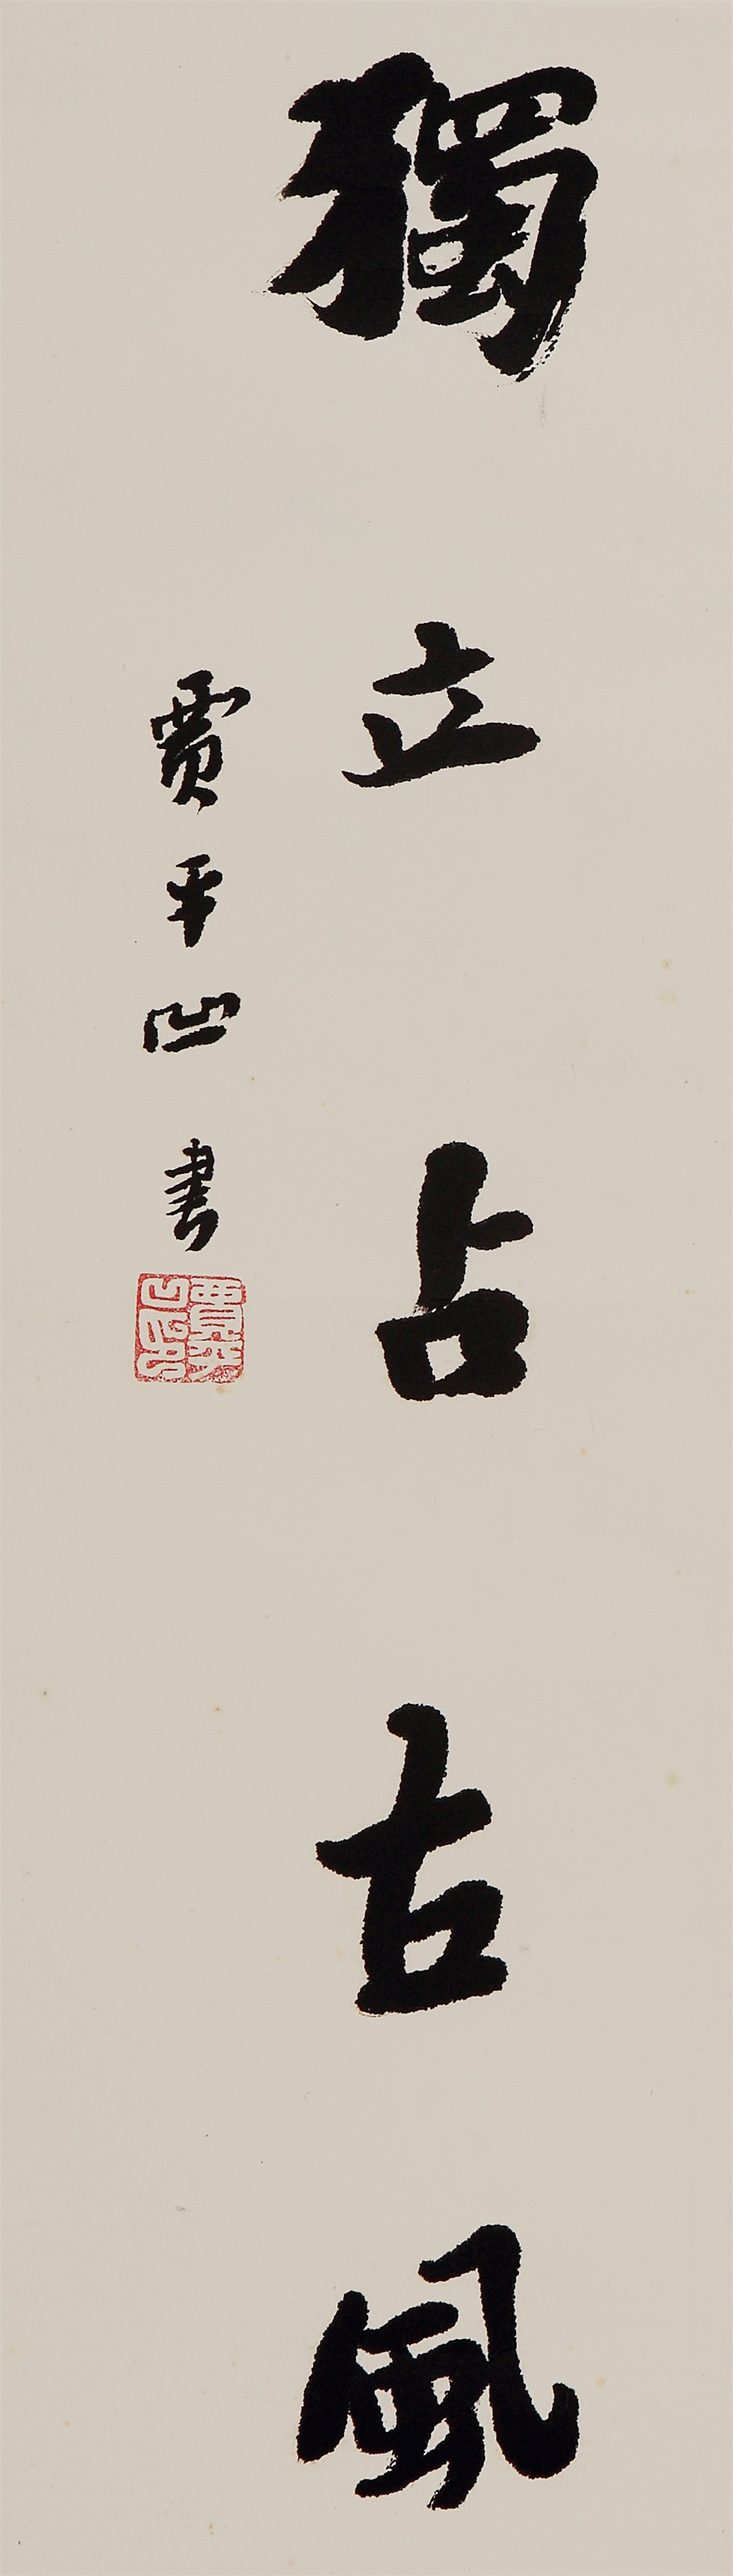 獨立占古風
賈平凹書
賈平凹印